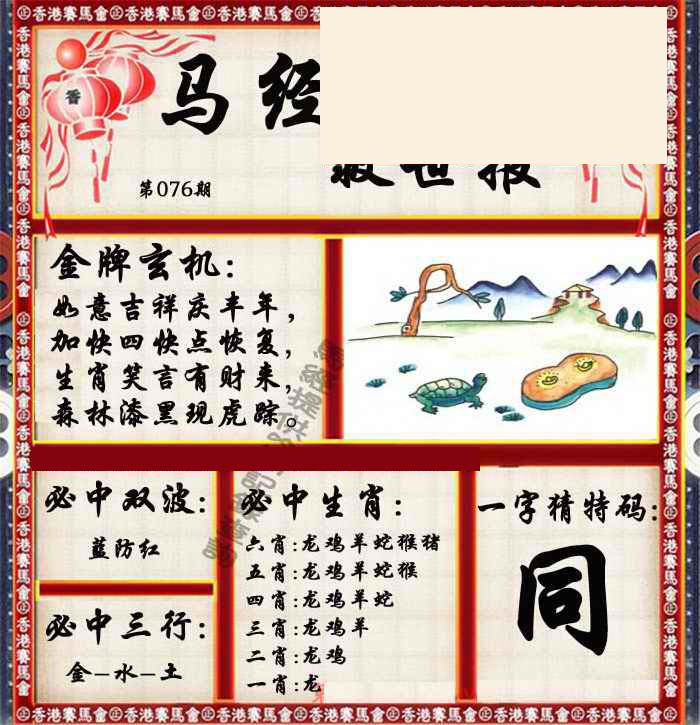 马经
救世报
第076期
金牌玄机:
如意吉祥庆丰年,
加快四快点恢复,
生肖笑言有财来,
森林漆黑现虎踪。
必中双波:
蓝防红
必中三行:
金-水-土
必中生肖:
六肖:龙鸡羊蛇猴猪
五肖:龙鸡羊蛇猴
四肖:龙鸡羊蛇
三肖:龙鸡羊
二肖:龙鸡
一肖:龙
一字猜特码:
同
香港賽馬會
香